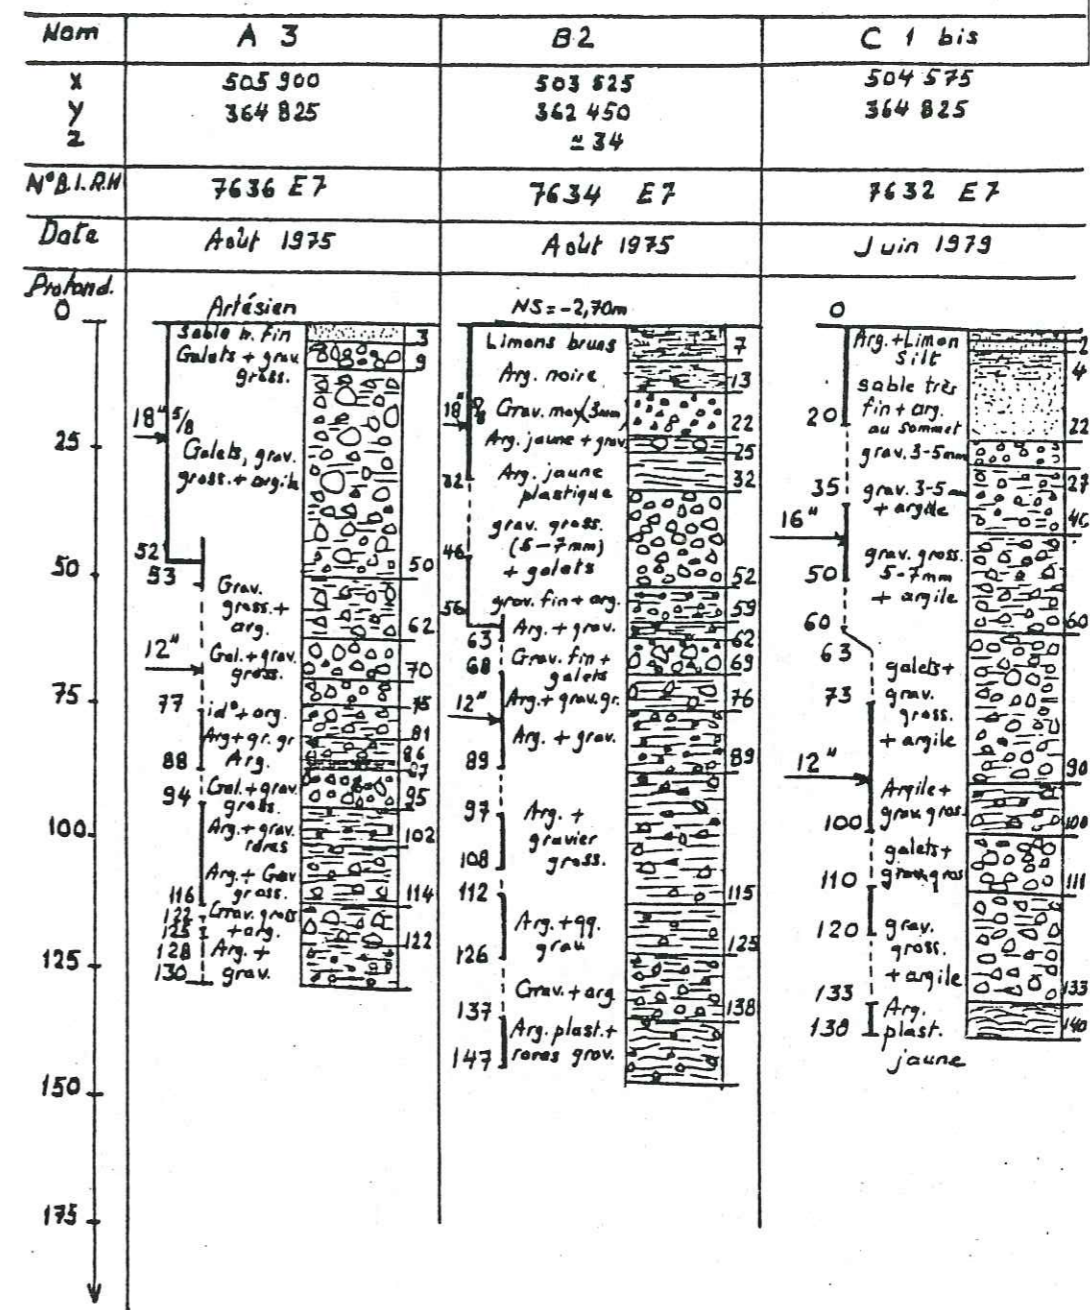 Nom A 3 B2 C 1 bis
X 505 900 503 525 504 575
Y 364 825 362 450 364 825
Z ≃ 34
N° B.I.R.H 7636 E7 7634 E7 7632 E7
Date Août 1975 Août 1975 Juin 1979
Profond.
0
25
50
75
100
125
150
175
Artésien
Sable tr. fin
3
Galets + grav. gross.
9
18" 5/8
Galets, grav.
gross. + argile
50
52
53
Grav.
gross. +
arg.
62
12"
Gal. + grav.
gross.
70
77
id° + arg.
75
Arg + gr. gr
81
88
Arg.
86
87
94
Gal. + grav.
gross.
95
Arg. + grav.
rares
102
Arg. + Grav
gross.
114
116
122
125
Grav. gross
+ arg.
122
128
130
Arg. +
grav.
NS = -2,70m
Limons bruns
7
Arg. noire
13
18"
Grav. moy (3mm)
22
Arg. jaune + grav
25
32
Arg. jaune
plastique
32
grav. gross.
(5-7mm)
+ galets
46
52
56
grav. fin + arg.
59
63
Arg. + grav.
62
68
Grav. fin +
galets
69
12"
Arg. + grav. gr.
76
89
Arg. + grav.
89
97
108
Arg. +
gravier
gross.
115
112
126
Arg. + qq.
grav.
125
137
Grav. + arg
138
147
Arg. plast. +
rares grav.
0
Arg. + Limon
Silt
2
4
20
sable très
fin + arg.
au sommet
22
grav. 3-5mm
27
35
grav. 3-5mm
+ argile
16"
50
grav. gross.
5-7mm
+ argile
60
60
63
73
galets +
grav.
gross.
+ argile
90
12"
100
Argile +
grav. gros
100
110
galets +
grav. gros
111
120
133
grav.
gross.
+ argile
133
138
Arg.
plast.
jaune
140